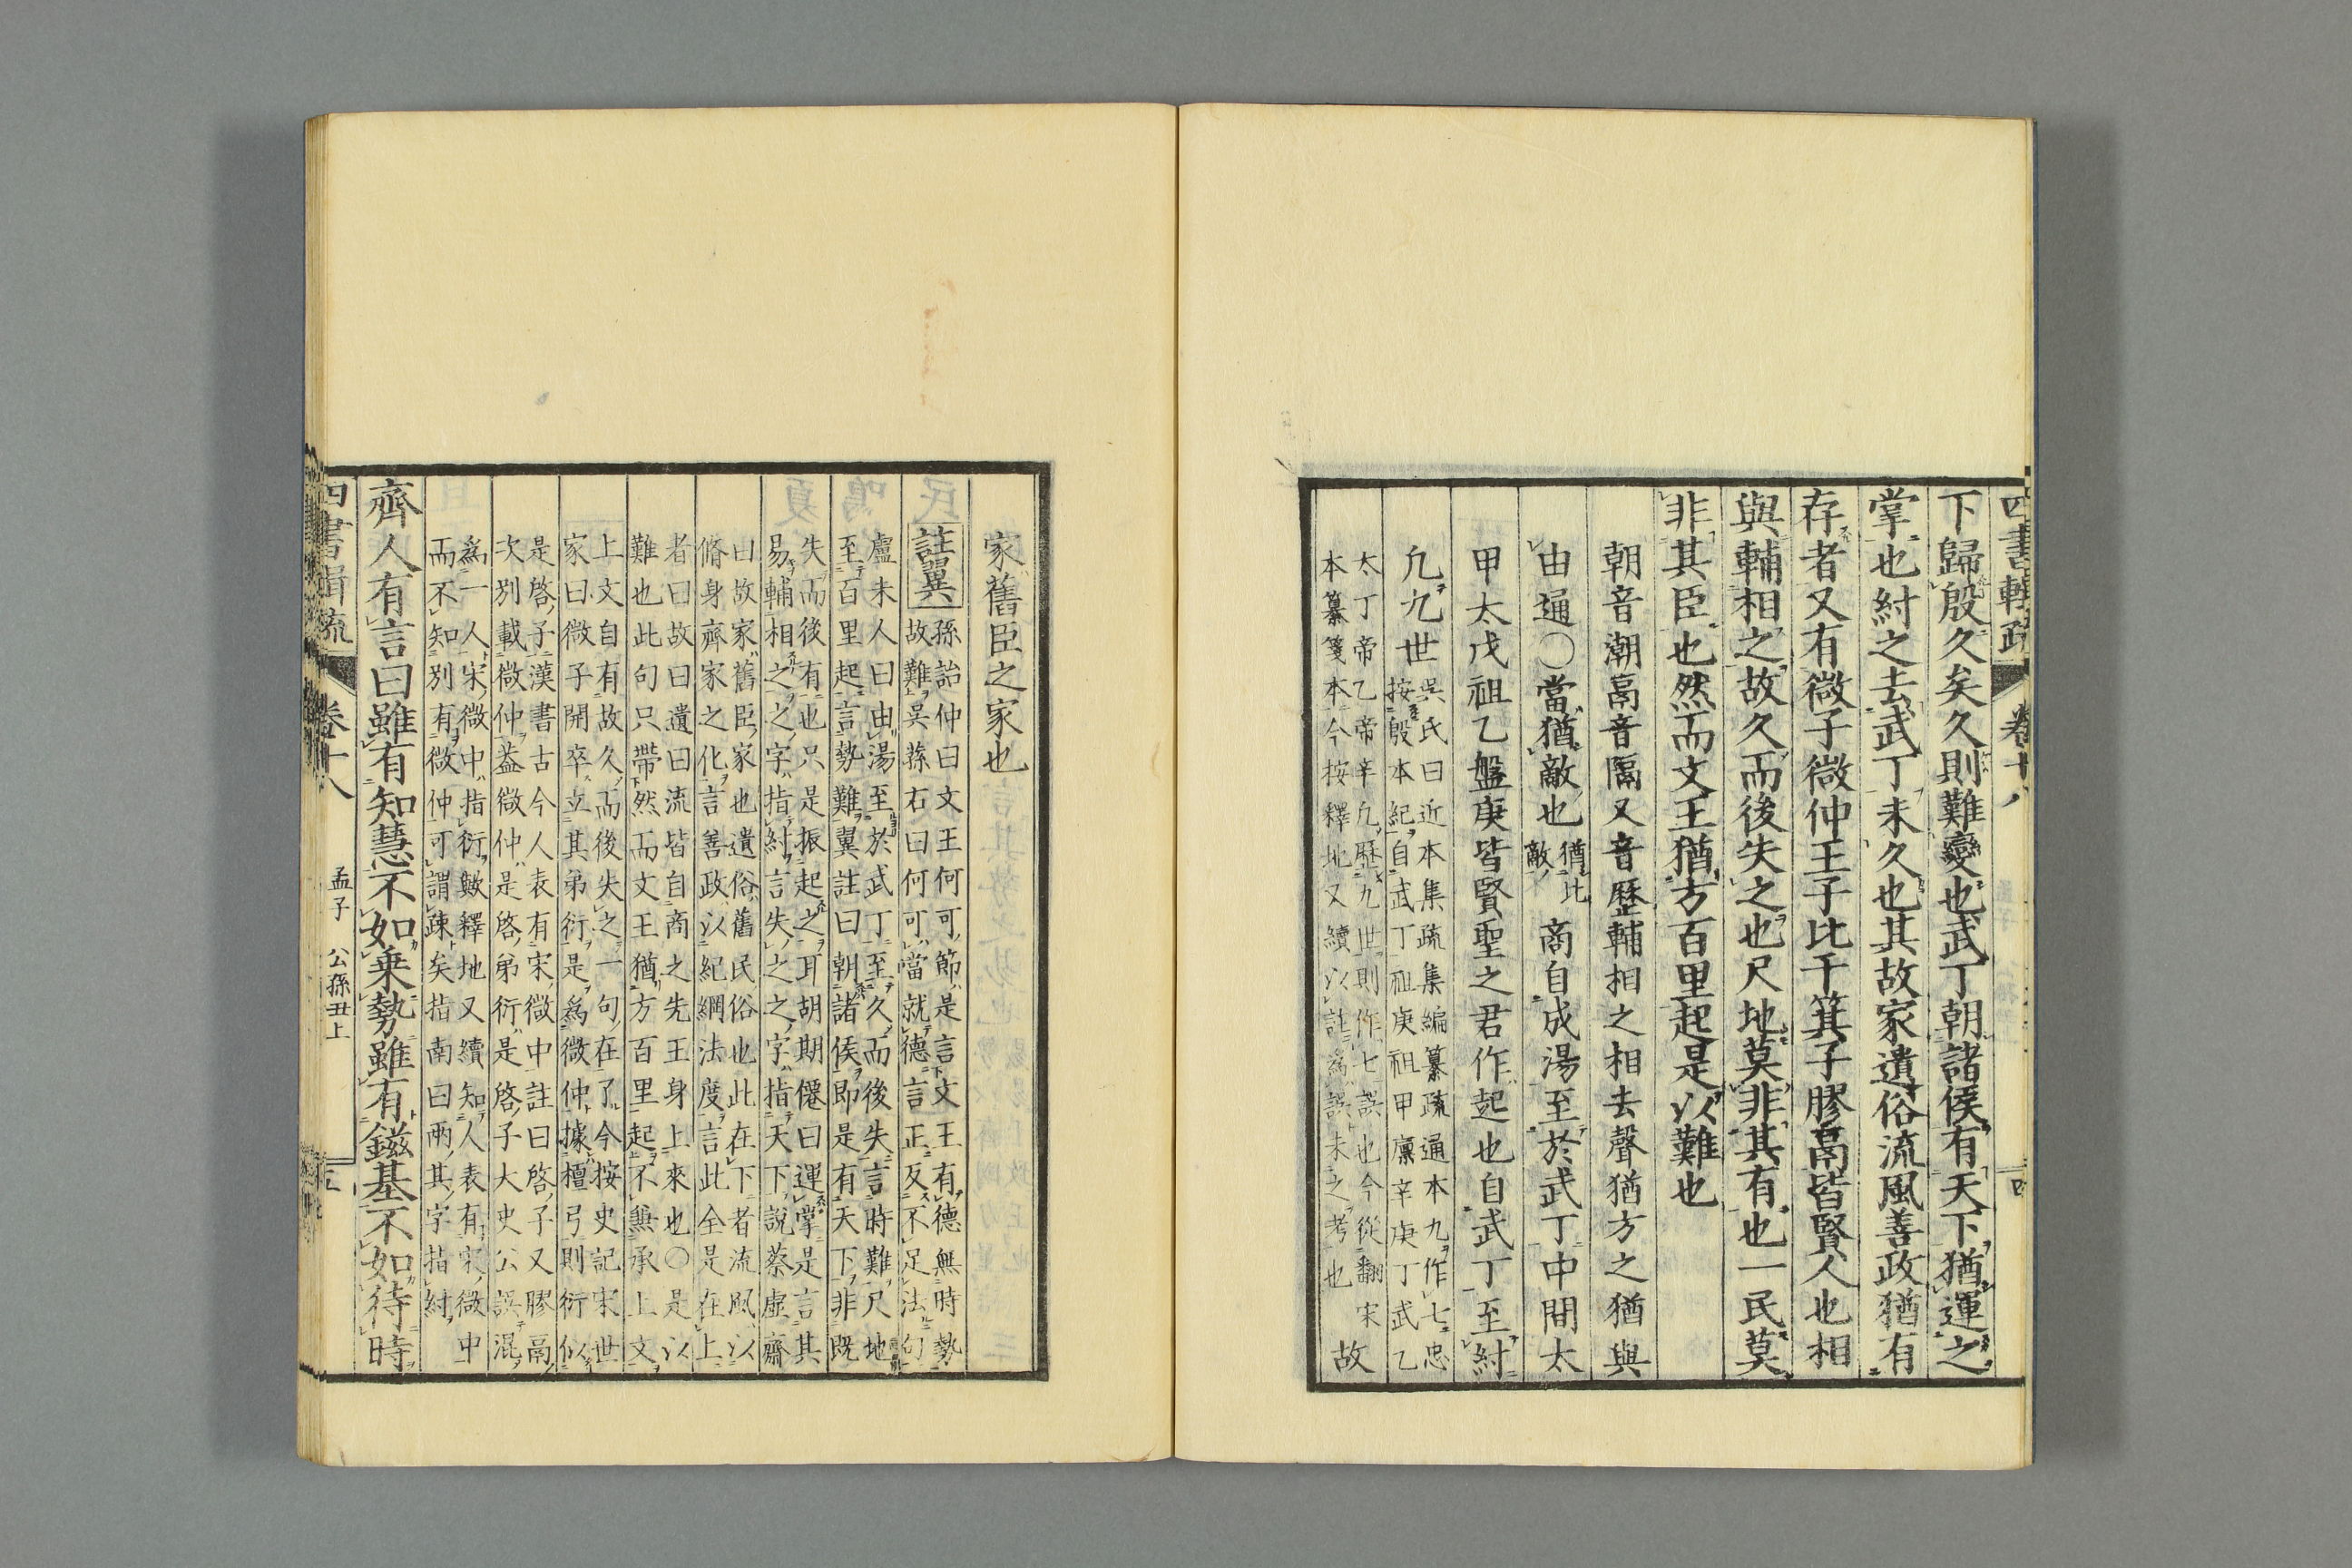 四書輯疏 卷十八 四
下歸殷久矣久則難變也武丁朝諸侯有天下猶運之
掌也紂之去武丁未久也其故家遺俗流風善政猶有
存者又有微子微仲王子比干箕子膠鬲皆賢人也相
與輔相之故久而後失之也尺地莫非其有也一民莫
非其臣也然而文王猶方百里起是以難也
朝音潮鬲音隔又音歷輔相之相去聲猶方之猶與
由通〇當猶敵也猶比敵商自成湯至於武丁中間太
甲太戊祖乙盤庚皆賢聖之君作起也自武丁至紂
凡九世吳氏曰近本集疏集編纂疏通本九作七忠
按殷本紀自武丁祖庚祖甲廩辛庚丁武乙
太丁帝乙帝辛凡歷九世則作七誤也今從翻宋
本纂箋本今按釋地又續以註為誤未之考也故
家舊臣之家也
註翼孫詒仲曰文王何可節是言文王有德無時勢
故難吳蓀右曰何可當就德言正反不足法句
盧未人曰由湯至於武丁至久而後失言時難尺地
至百里起言勢難翼註曰朝諸侯即是有天下非既
失而後有也只是振起之耳胡期僊曰運掌是言其
易輔相之之字指紂言失之之字指天下說蔡虛齋
曰故家舊臣家也遺俗舊民俗也此在下者流風以
脩身齊家之化言善政以紀綱法度言此全是在上
者曰故曰遺曰流皆自商之先王身上來也〇是以
難也此句只帶然而文王猶方百里起不無承上文
上文自有故久而後失之一句在了今按史記宋世
家曰微子開卒立其弟衍是為微仲據檀弓則衍似
是啓子漢書古今人表有宋微中註曰啓子又膠鬲
次別載微仲蓋微仲是啓弟衍是啓子大史公誤混
為一人宋微中指衍歟釋地又續知人表有宋微中
而不知別有微仲可謂疎矣指南曰兩其字指紂
齊人有言曰雖有知慧不如乗勢雖有鎡基不如待時
四書輯疏 卷十八 孟子 公孫丑上 五